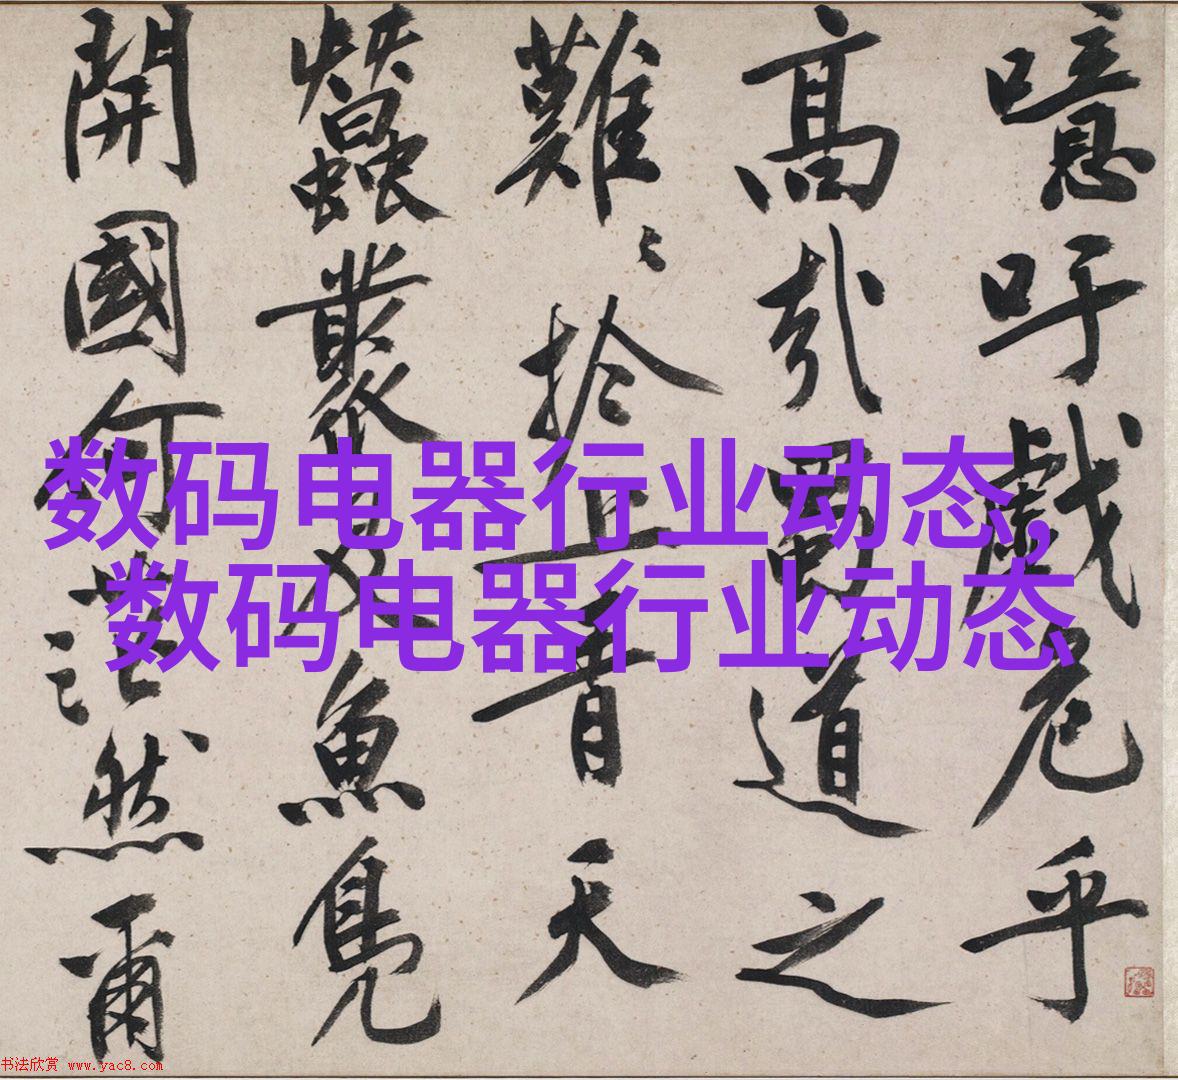 噫吁戲危乎
高哉蜀道之
難〻於上青天
蠶叢及魚鳧
開國何茫然爾
数码电器行业动态,
数码电器行业动态
书法欣赏 www.yac8.com